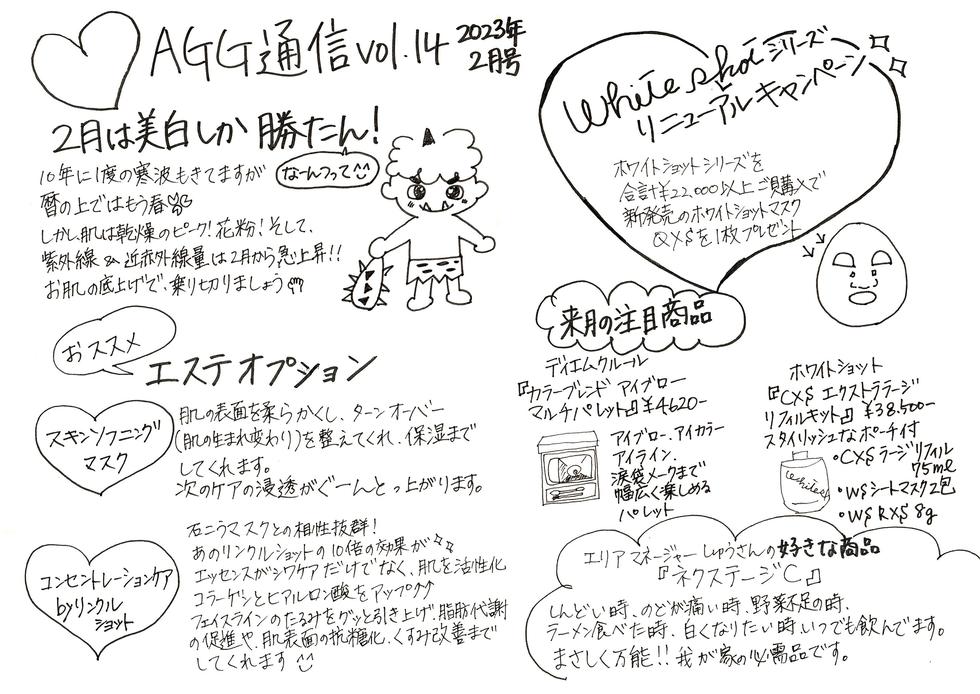 AGG通信vol.14
2023年
2月号
2月は美白しか勝たん!
10年に1度の寒波もきてますが
暦の上ではもう春
しかし肌は乾燥のピーク!花粉!そして、
紫外線&近赤外線量は2月から急上昇!!
お肌の底上げで、乗り切りましょう
なーんつって
おススメ
エステオプション
スキンソフニング
マスク
肌の表面を柔らかくし、ターンオーバー
(肌の生まれ変わり)を整えてくれ、保湿まで
してくれます。
次のケアの浸透がぐーんと上がります。
コンセントレーションケア
byリンクル
ショット
石こうマスクとの相性抜群!
あのリンクルショットの10倍の効果が
エッセンスがシワケアだけでなく、肌を活性化
コラーゲンとヒアルロン酸をアップ↗↗
フェイスラインのたるみをグッと引き上げ、脂肪代謝
の促進や、肌表面の抗糖化、くすみ改善まで
してくれます
White shotシリーズ
リニューアルキャンペーン
ホワイトショットシリーズを
合計¥22,000以上ご購入で
新発売のホワイトショットマスク
QXSを1枚プレゼント
来月の注目商品
ディエムクルール
『カラーブレンド アイブロー
マルチパレット』¥4620-
アイブロー、アイカラー
アイライン、
涙袋メークまで
幅広く楽しめる
パレット
ホワイトショット
『CXS エクストララージ
リフィルキット』¥38,500-
スタイリッシュなポーチ付
・CXSラージリフィル
75ml
・WSシートマスク2包
・WS RXS 8g
エリアマネージャーしゅうさんの好きな商品
『ネクステージC』
しんどい時、のどが痛い時、野菜不足の時、
ラーメン食べた時、白くなりたい時、いつでも飲んでます。
まさしく万能!!我が家の必需品です。